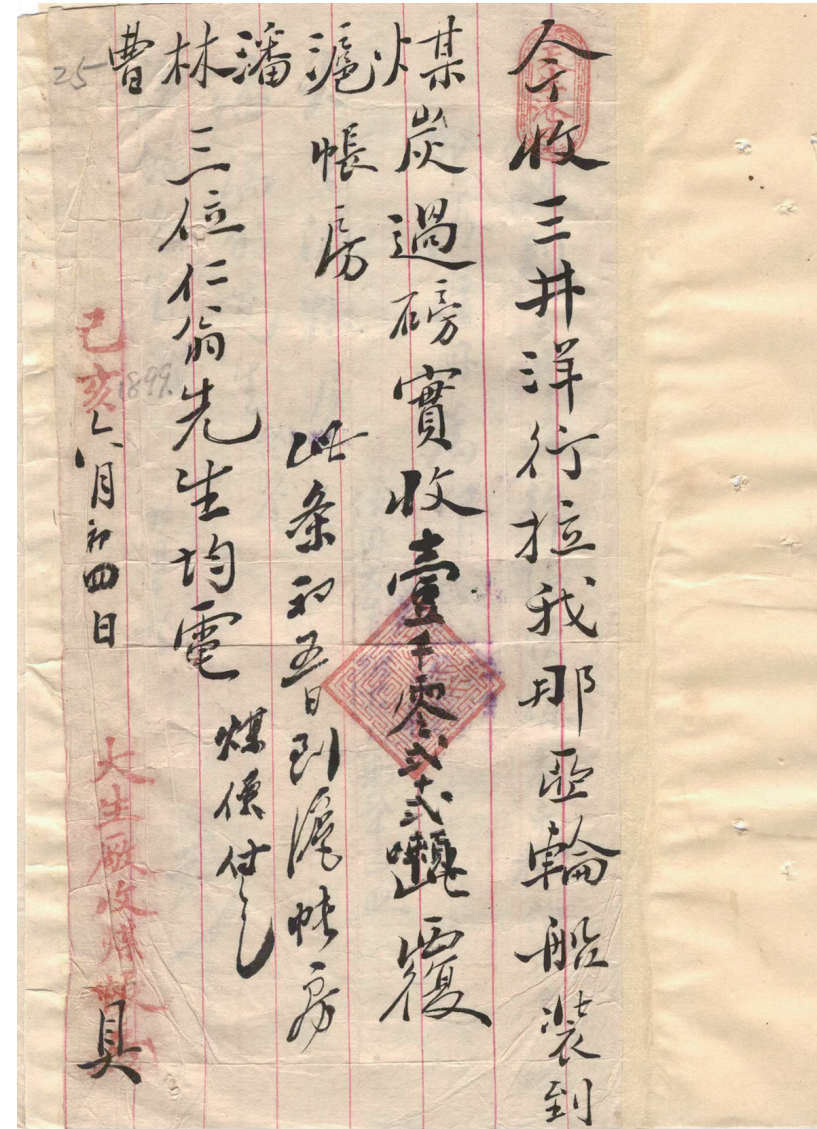 今收三井洋行拉我那亞輪船裝到
煤炭過磅實收壹千零弍十弍噸覆
滬帳房
此条初五日到滬帳房
潘
林
曹
三位仁翁先生均電
煤價付訖
己亥六月初四日
大生厰收煤
具
25
1899.